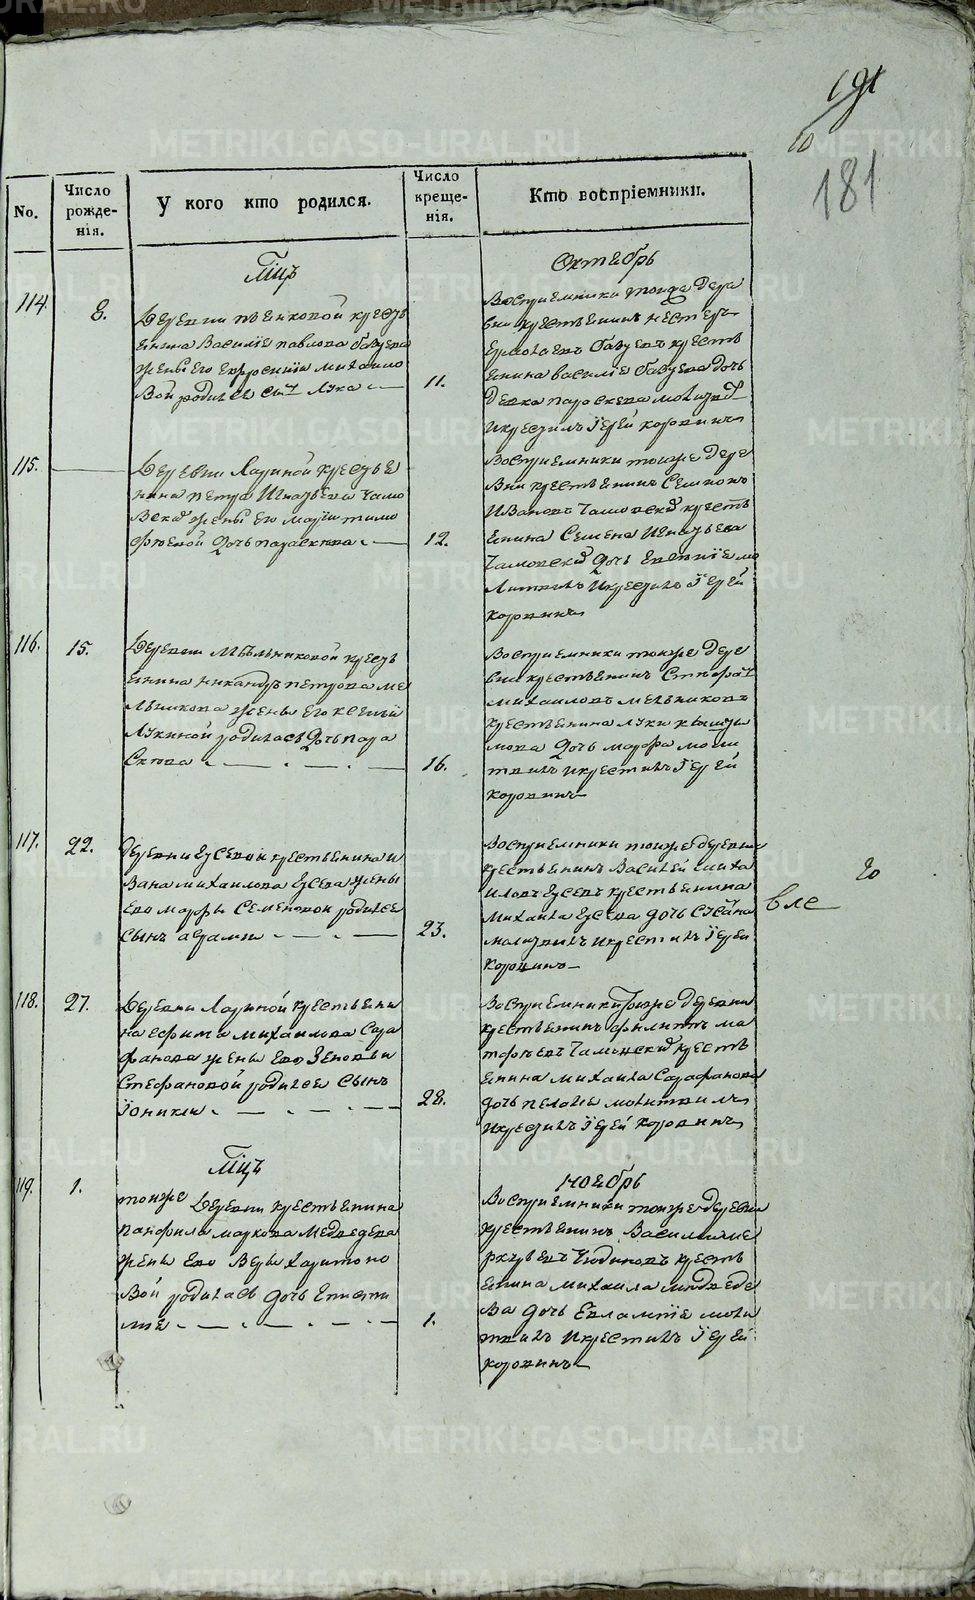 191
10
181
No.
Число рожде-нія.
У кого кто родился.
Число креще-нія.
Кто воспріемники.
Мцъ
Октябрь
114.
8.
Деревни пѣнковой кресть
янина Василіе павлова
жены его евфросиніи михаило
вой родился сынъ лука
11.
Воспріемники тоижде дере
вни крестьянинъ нестеръ
крестья
янина василіе дочь
девка параскева молитвилъ
и крестилъ іерей коровинъ
115.
Деревни Лариной крестья
нина петра Игнатьева Чамо
вскаго жены его маріи тимо
фѣевой дочь параскева
12.
Воспріемники тоижде дере
вни крестьянинъ Семіонъ
Ивановъ Чамовской кресть
янина Семена Игнатьева
Чамовскаго дочь Евгеніе мо
литвилъ и крестилъ іерей
коровинъ
116.
15.
Деревни Мѣльниковой кресть
янина никандра петрова ме
льникова жены его ксеніи
лукиной родилась дочь пара
скева
16.
Воспріемники тоижде дере
вни крестьянинъ
михаиловъ мельниковъ
крестьянина луки
мова дочь марфа моли
твилъ и крестилъ іерей
коровинъ
117.
22.
Деревни Гусевой крестьянина и
вана михаилова Гусева жены
его марфы Семеновой родился
сынъ аврамии
23.
Воспріемники тоижде деревни
крестьянинъ Василей миха
иловъ Гусевъ крестьянина
михаила Гусева дочь Сусана
молитвилъ и крестилъ іерей
коровинъ
вле
20
118.
27.
Деревни Лариной крестьяни
на ефима михаилова Сара
фанова жены его Зеновьи
Стефановой родился сынъ
іоникии
28.
Воспріемники тоижде деревни
крестьянинъ филиппъ ма
тфѣевъ Чамовской кресть
янина михаила Сарафанова
дочь пелагіе молитвилъ
и крестилъ іерей коровинъ
Мцъ
ноябрь
119.
1.
тоижде деревни крестьянина
панфила маркова медведева
жены его Веры харитоно
вой родилась дочь Еписти
міе
1.
Воспріемники тоижде деревни
крестьянинъ Василии ме
ркурьевъ Чюдиновъ кресть
янина михаила медведе
ва дочь Евлампіе моли
твилъ и крестилъ іерей
коровинъ
METRIKI.GASO-URAL.RU